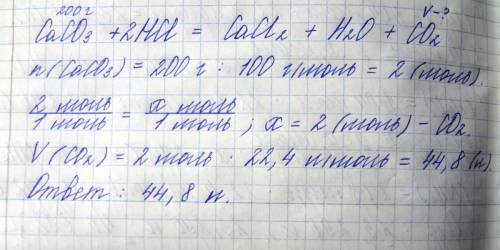 200 г V-?
CaCO₃ + 2HCl = CaCl₂ + H₂O + CO₂
n(CaCO₃) = 200 г : 100 г/моль = 2 (моль).
2 моль / 1 моль = x моль / 1 моль ; x = 2 (моль) - CO₂.
V(CO₂) = 2 моль · 22,4 л/моль = 44,8 (л).
Ответ: 44,8 л.